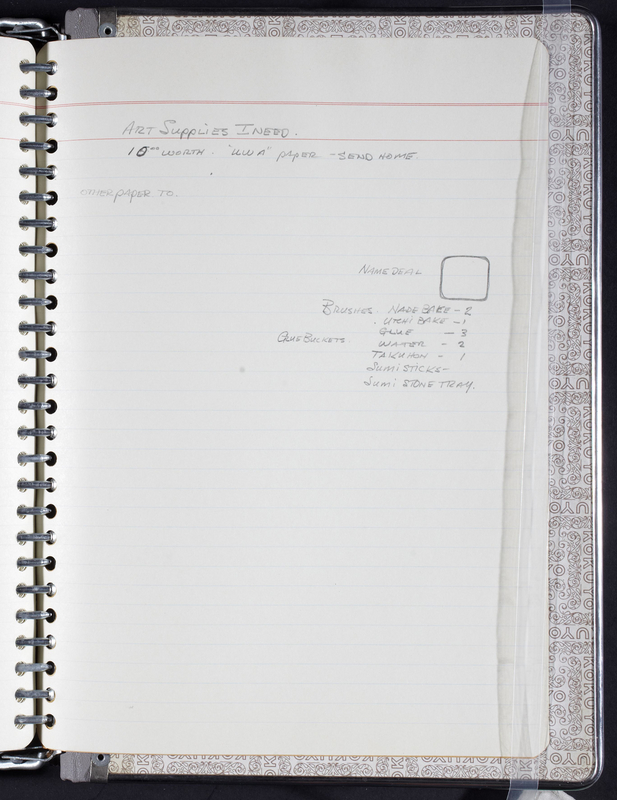 ART SUPPLIES I NEED.
10⁰⁰ WORTH - "KWA" PAPER - SEND HOME.
OTHER PAPER TO.
NAME SEAL
BRUSHES - NADE BAKE - 2
. UTCHI BAKE - 1
GLUE - 3
GLUE BUCKETS WATER - 2
TAKUHON - 1
SUMI STICKS -
SUMI STONE TRAY.